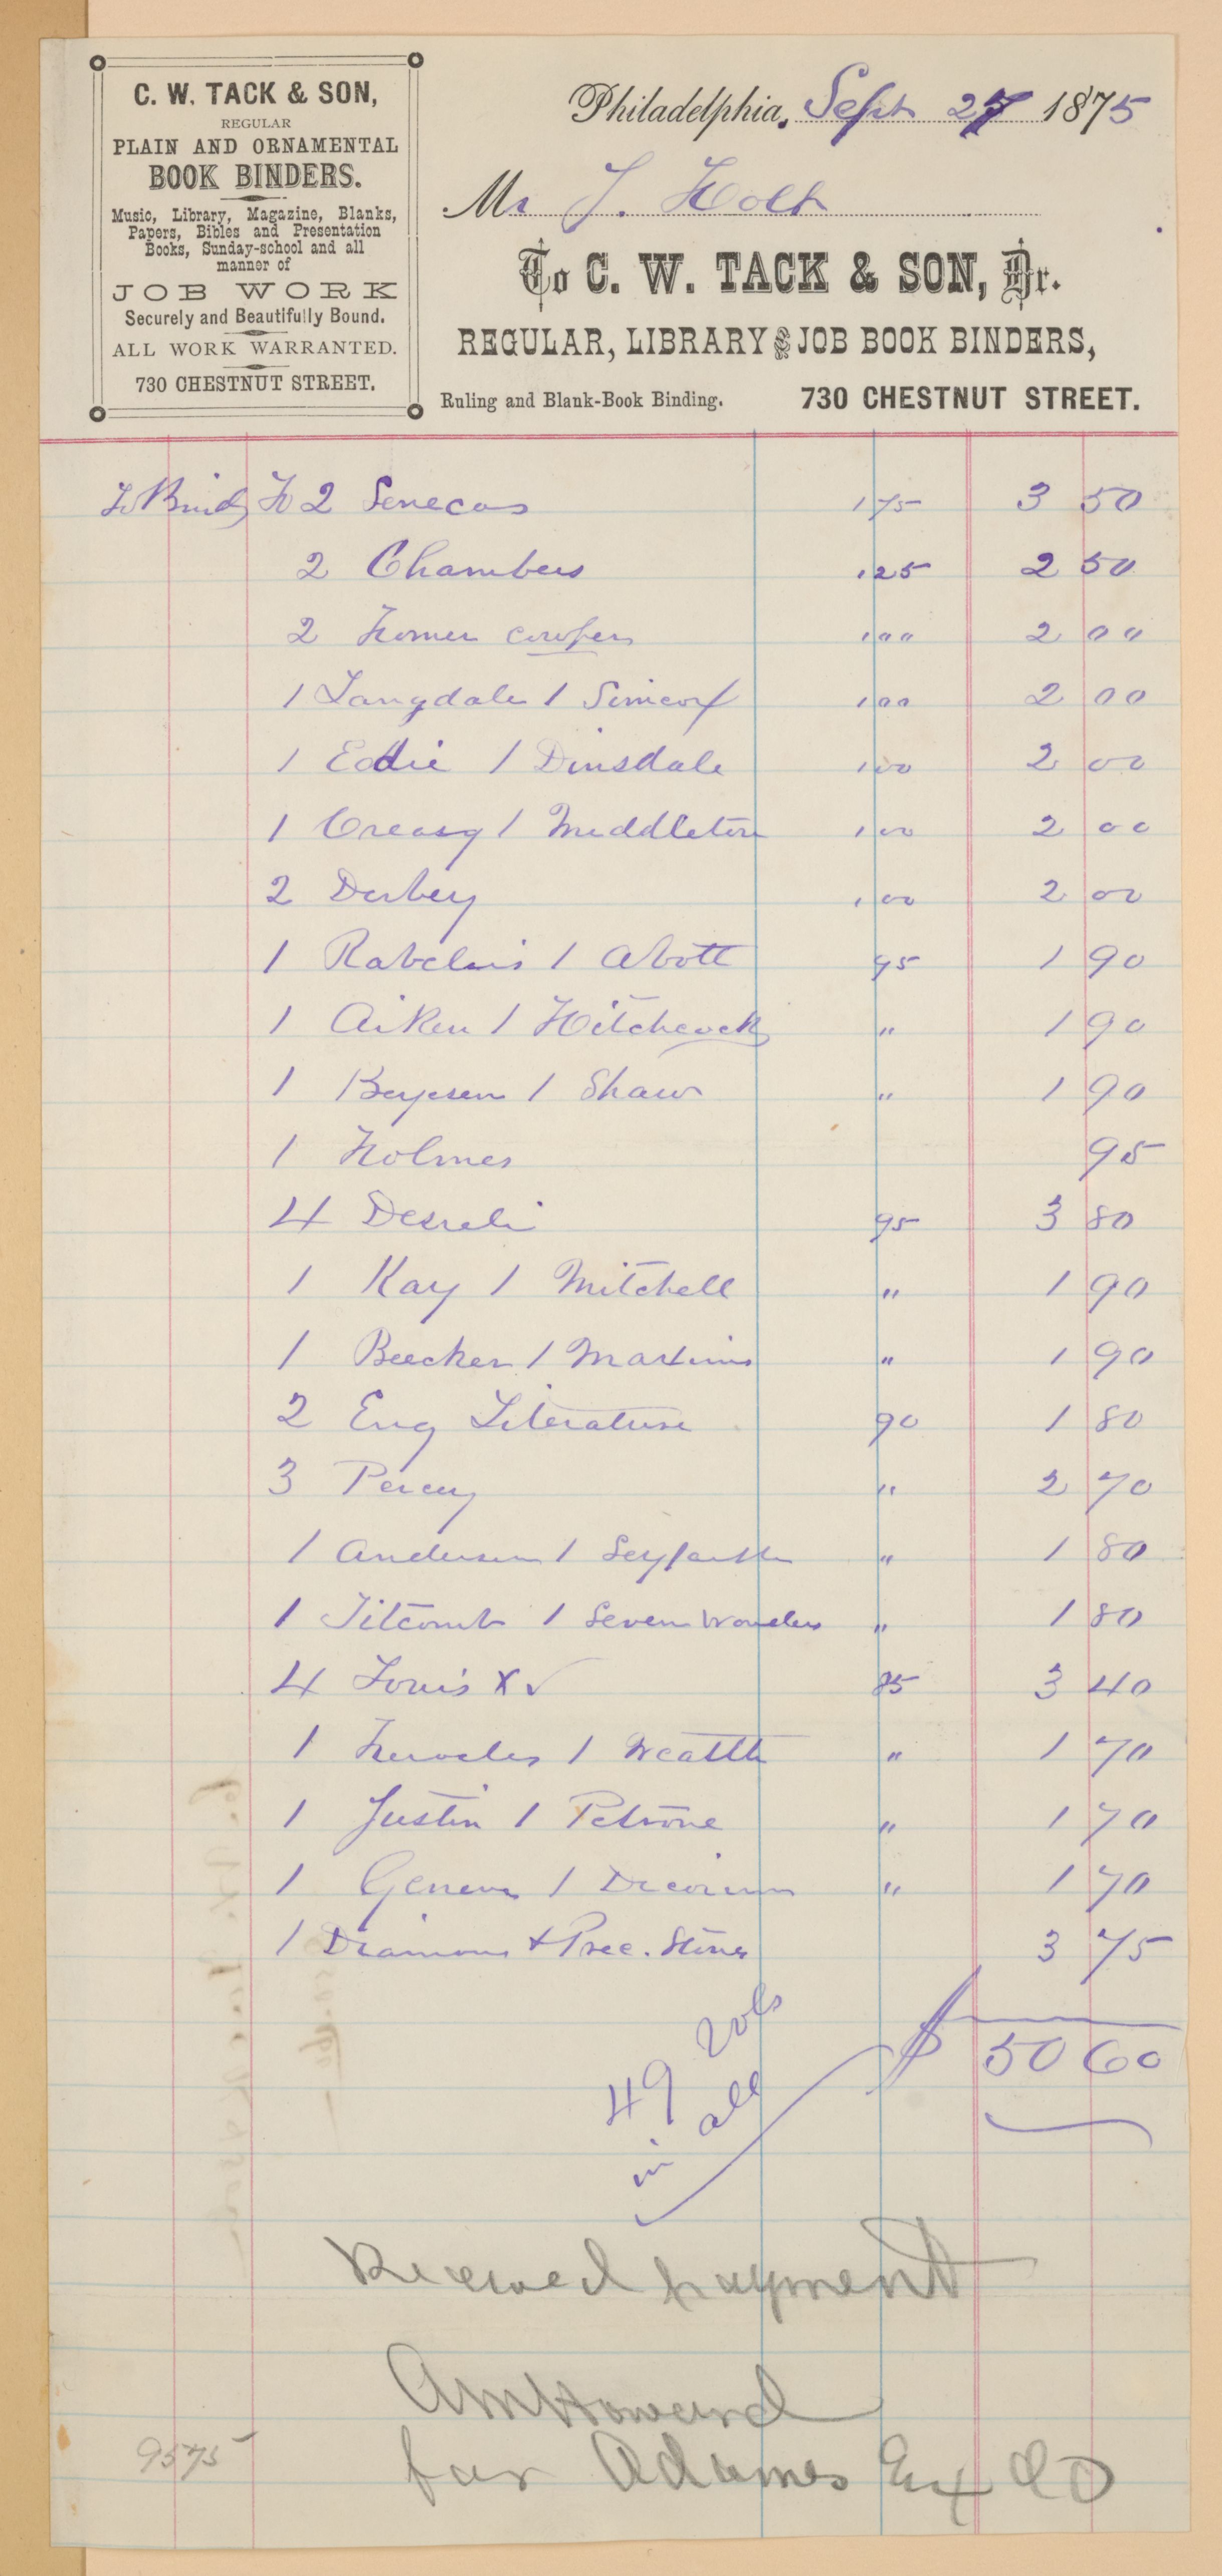 C. W. TACK & SON,
REGULAR
PLAIN AND ORNAMENTAL
BOOK BINDERS.
Music, Library, Magazine, Blanks,
Papers, Bibles and Presentation
Books, Sunday-school and all
manner of
JOB WORK
Securely and Beautifully Bound.
ALL WORK WARRANTED.
730 CHESTNUT STREET.
Philadelphia, Sept 27 1875
Mr J. Holt
To C. W. TACK & SON, Dr.
REGULAR, LIBRARY and JOB BOOK BINDERS,
Ruling and Blank-Book Binding. 730 CHESTNUT STREET.
To Bindg 2 Senecas 175 3 50
2 Chambers 125 2 50
2 Homer Cowper 100 2 00
1 Langdale 1 Simcox 100 2 00
1 Eddie 1 Dinsdale 100 2 00
1 Creasy 1 Middleton 100 2 00
2 Derbey 100 2 00
1 Rabelais 1 Abott 95 1 90
1 Aiken 1 Hitchcock " 1 90
1 Boyesen 1 Shaw " 1 90
1 Holmes 95
4 95 3 80
1 Kay 1 Mitchell " 1 90
1 Beecher 1 " 1 90
2 Eng Literature 90 1 80
3 Percy " 2 70
1 Anderson 1 Seyffarth " 1 80
1 Titcomb 1 Seven Wonders " 1 80
4 Louis XV 85 3 40
1 1 " 1 70
1 Justin 1 Petrone " 1 70
1 Geneva 1 " 1 70
1 Diamons & Prec. Stones 3 75
49 vols
in all
$ 50 60
Received payment
AM Howard
for Adames Ex Co
9575